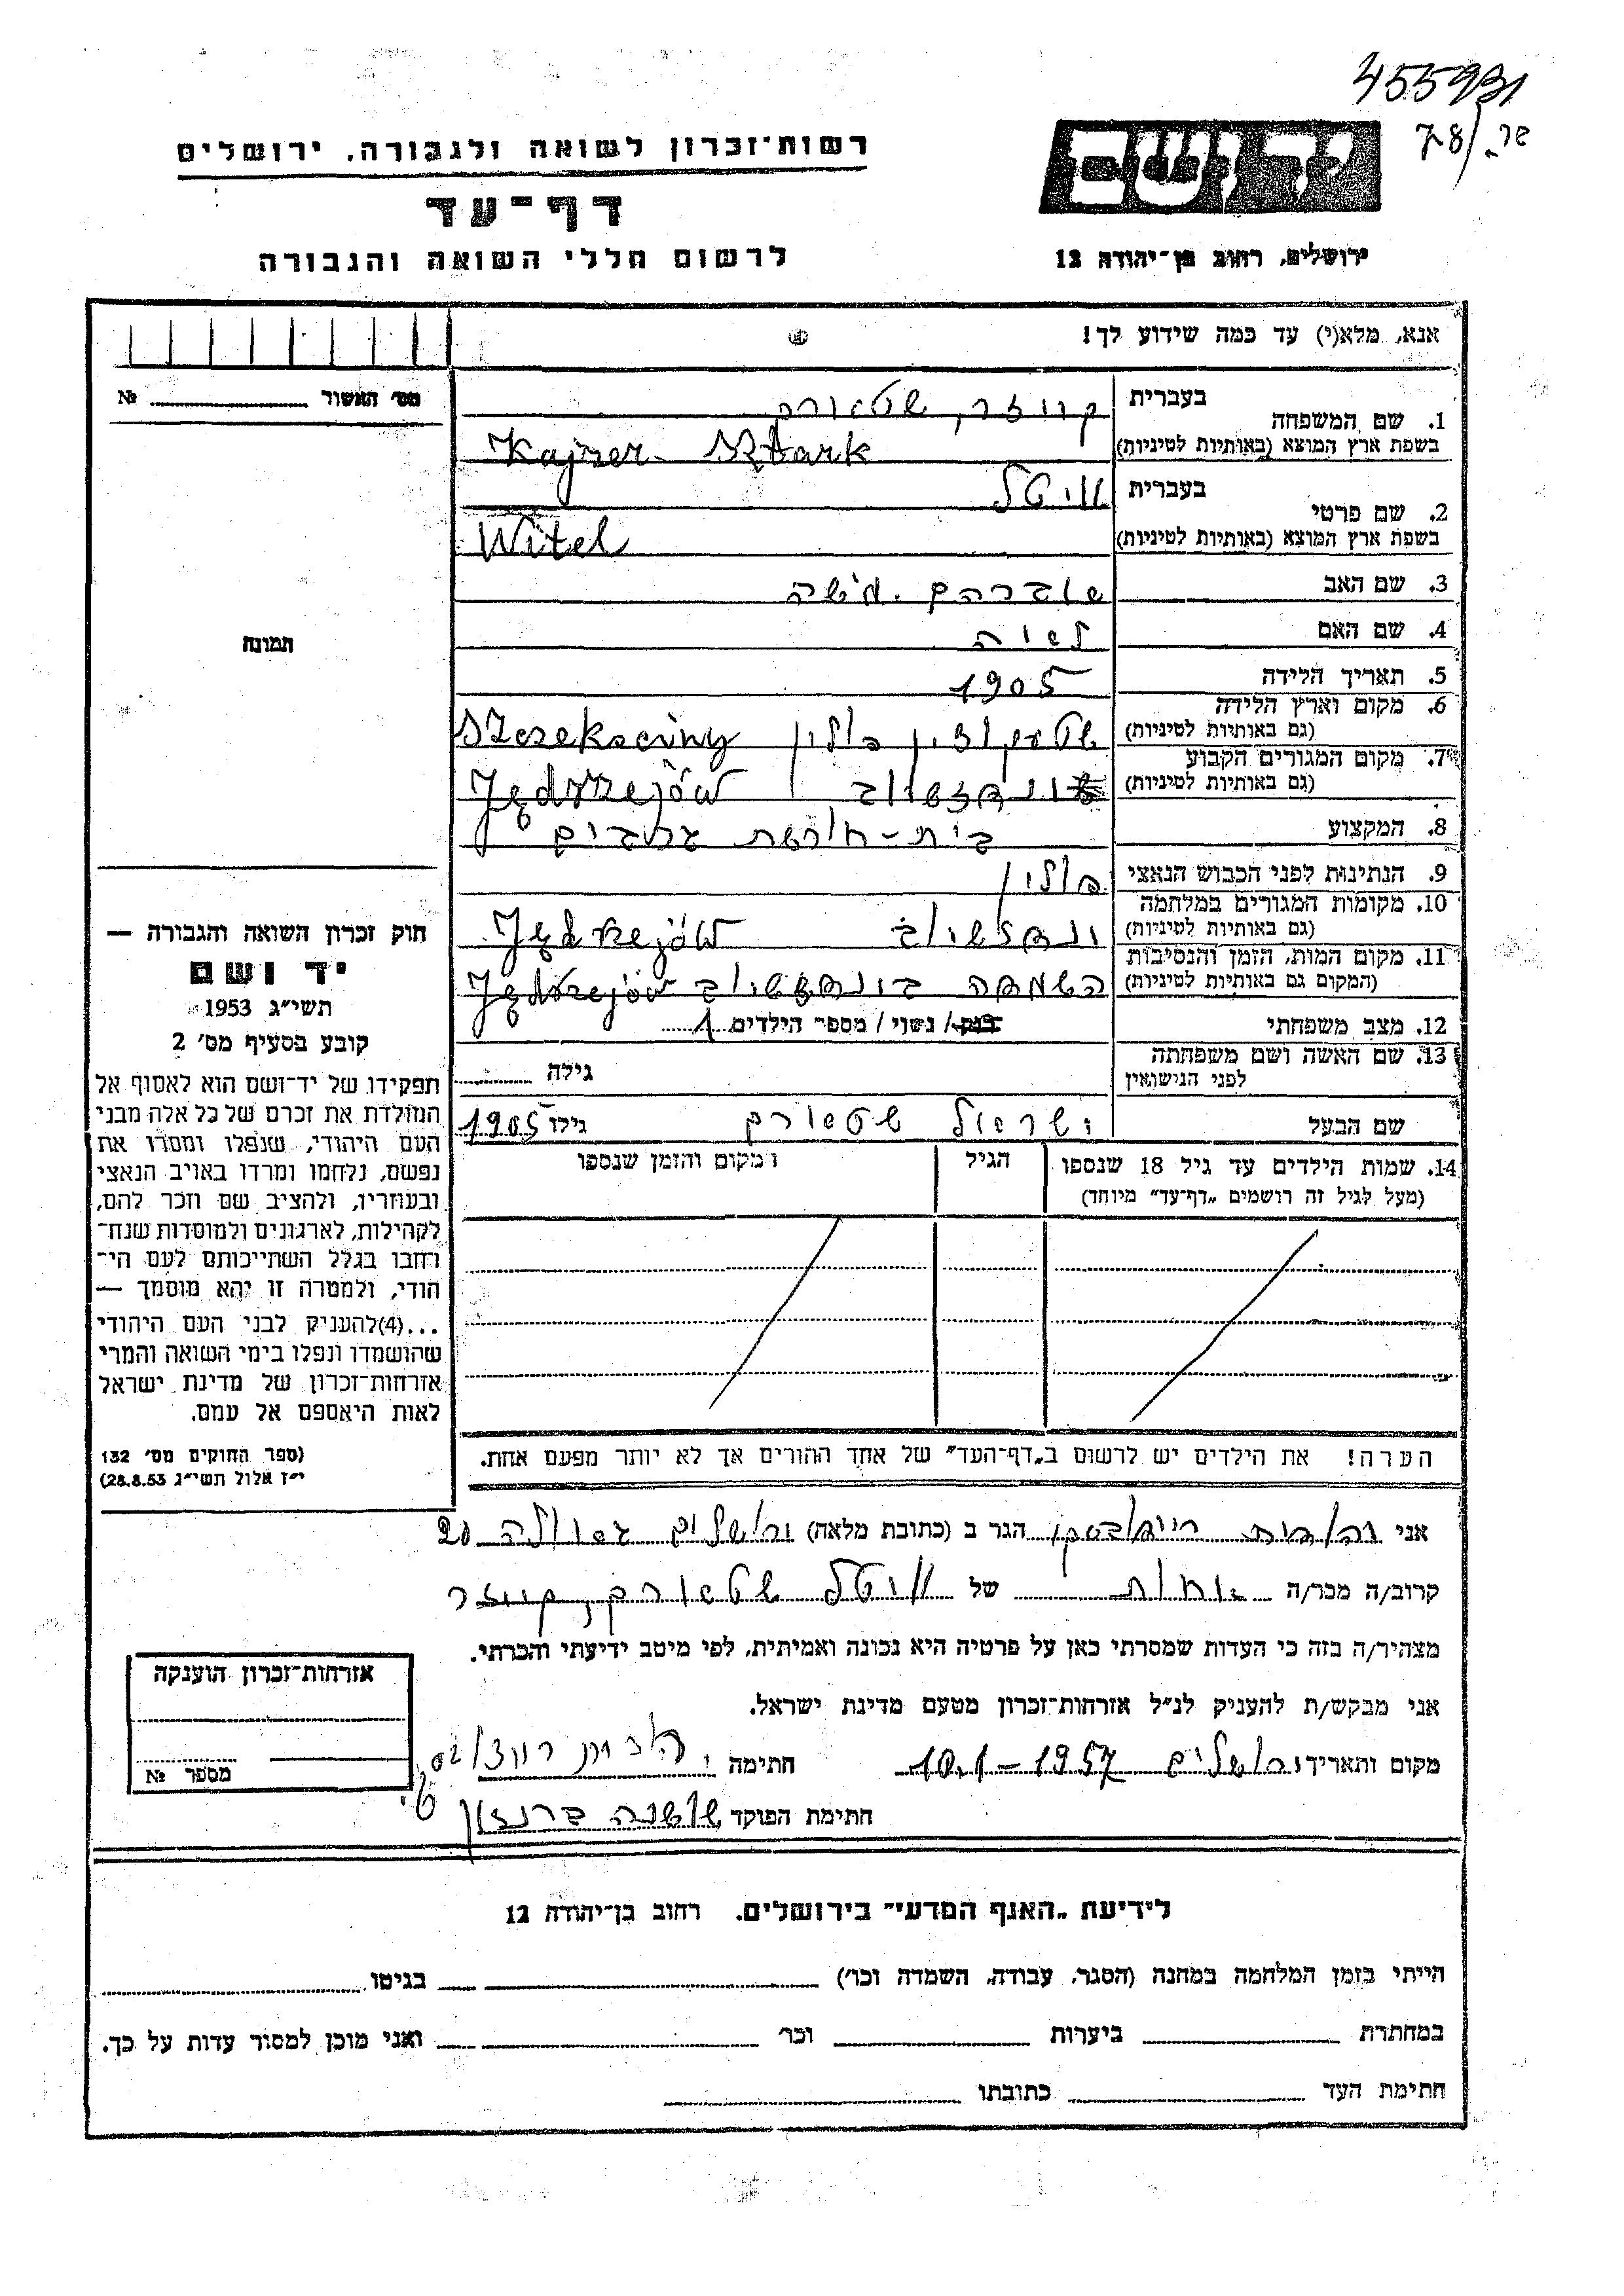 455931
רשות־זכרון לשואה ולגבורה, ירושלים
דף־עד
לרשום חללי השואה והגבורה
ירושלים, רחוב בן־יהודה 12
אנא, מלא(י) עד כמה שידוע לך!
מס׳ האשור № 
1. שם המשפחה
בעברית
קייזר, שטארק
בשפת ארץ המוצא (באותיות לטיניות)
Kajzer - Sztark
2. שם פרטי
בעברית
וויטל
בשפת ארץ המוצא (באותיות לטיניות)
Witel
3. שם האב
אברהם. משה
4. שם האם
לאה
5. תאריך הלידה
1905
6. מקום וארץ הלידה
(גם באותיות לטיניות)
פולין
7. מקום המגורים הקבוע
(גם באותיות לטיניות)
Jędrzejów
8. המקצוע
בית-חרשת גרבים
9. הנתינות לפני הכבוש הנאצי
פולין
10. מקומות המגורים במלחמה
(גם באותיות לטיניות)
Jędrzejów
11. מקום המות, הזמן והנסיבות
(המקום גם באותיות לטיניות)
Jędrzejów
12. מצב משפחתי
רווק/ נשוי/ מספר הילדים 1
13. שם האשה ושם משפחתה
לפני הנישואין
גילה
שם הבעל
ישראל שטארק
גילו 1905
14. שמות הילדים עד גיל 18 שנספו
(מעל לגיל זה רושמים „דף־עד״ מיוחד)
הגיל
ומקום והזמן שנספו
הערה! את הילדים יש לרשום ב„דף־העד״ של אחד ההורים אך לא יותר מפעם אחת.
תמונה
חוק זכרון השואה והגבורה —
יד ושם
תשי״ג 1953
קובע בסעיף מס׳ 2
תפקידו של יד־ושם הוא לאסוף אל
המולדת את זכרם של כל אלה מבני
העם היהודי, שנפלו ומסרו את
נפשם, נלחמו ומרדו באויב הנאצי
ובעוזריו, ולהציב שם וזכר להם,
לקהילות, לארגונים ולמוסדות שנח־
רחבו בגלל השתייכותם לעם הי־
הודי, ולמטרה זו יהא מוסמך —
...(4)להעניק לבני העם היהודי
שהושמדו ונפלו בימי השואה והמרי
אזרחות־זכרון של מדינת ישראל
לאות היאספם אל עמם.
(ספר החוקים מס׳ 132
י״ז אלול תשי״ג 28.8.53)
אני יהודית הגר ב (כתובת מלאה) ירושלים גאולה 20
קרוב/ה מכר/ה אחות של וויטל שטארק, קייזר
מצהיר/ה בזה כי העדות שמסרתי כאן על פרטיה היא נכונה ואמיתית, לפי מיטב ידיעתי והכרתי.
אני מבקש/ת להעניק לנ״ל אזרחות־זכרון מטעם מדינת ישראל.
מקום ותאריך ירושלים 10.1-1957 חתימה
חתימת הפוקד שושנה
אזרחות־זכרון הוענקה
מספר №
לידיעת „האגף המדעי״ בירושלים. רחוב בן־יהודה 12
הייתי בזמן המלחמה במחנה (הסגר, עבודה, השמדה וכו׳) בגיטו
במחתרת ביערות וכו׳ ואני מוכן למסור עדות על כך.
חתימת העד כתובתו